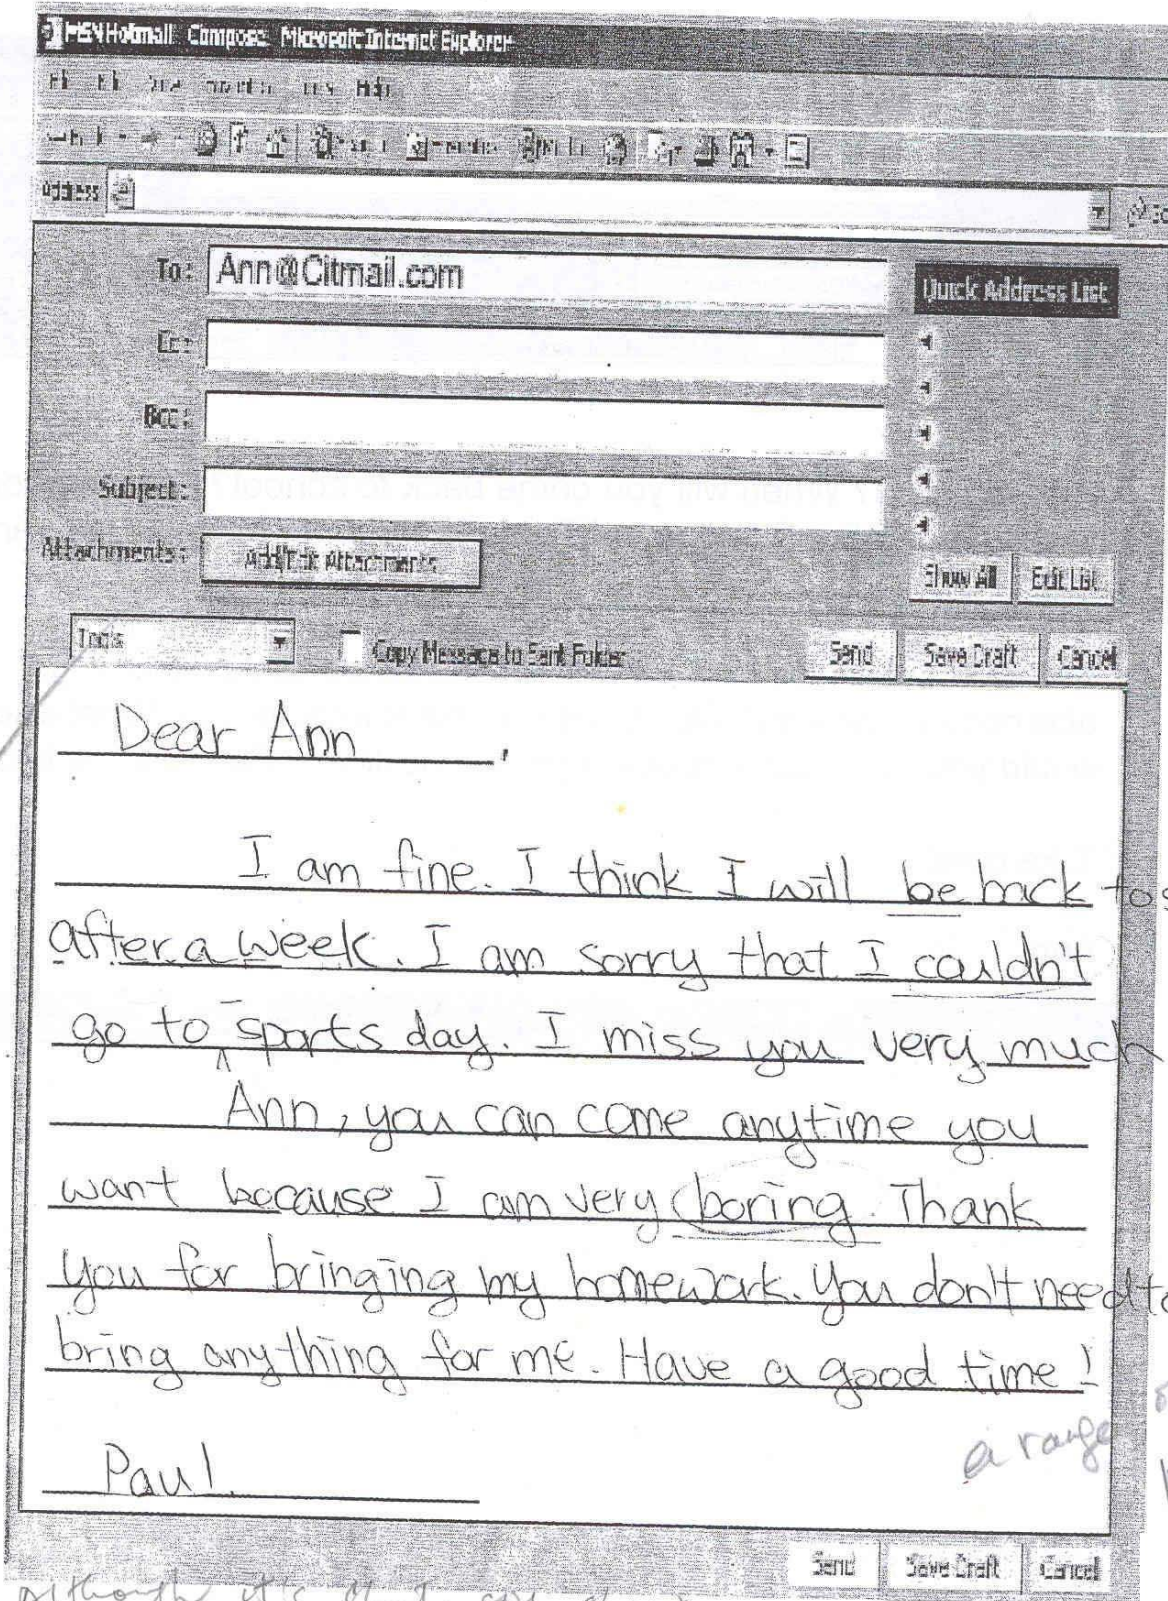 MSN Hotmail Compose Microsoft Internet Explorer
Help
Address
To: Ann@Citmail.com
Quick Address List
Cc:
Bcc:
Subject:
Attachments: Add/Edit Attachments
Show All Edit List
Tools Copy Message to Sent Folder Send Save Draft Cancel
Dear Ann,
I am fine. I think I will be back to s
after a week. I am sorry that I couldn't
go to sports day. I miss you very much
Ann, you can come anytime you
want because I am very boring. Thank
you for bringing my homework. You don't need to
bring anything for me. Have a good time!
a range
Paul.
Send Save Draft Cancel
although it's